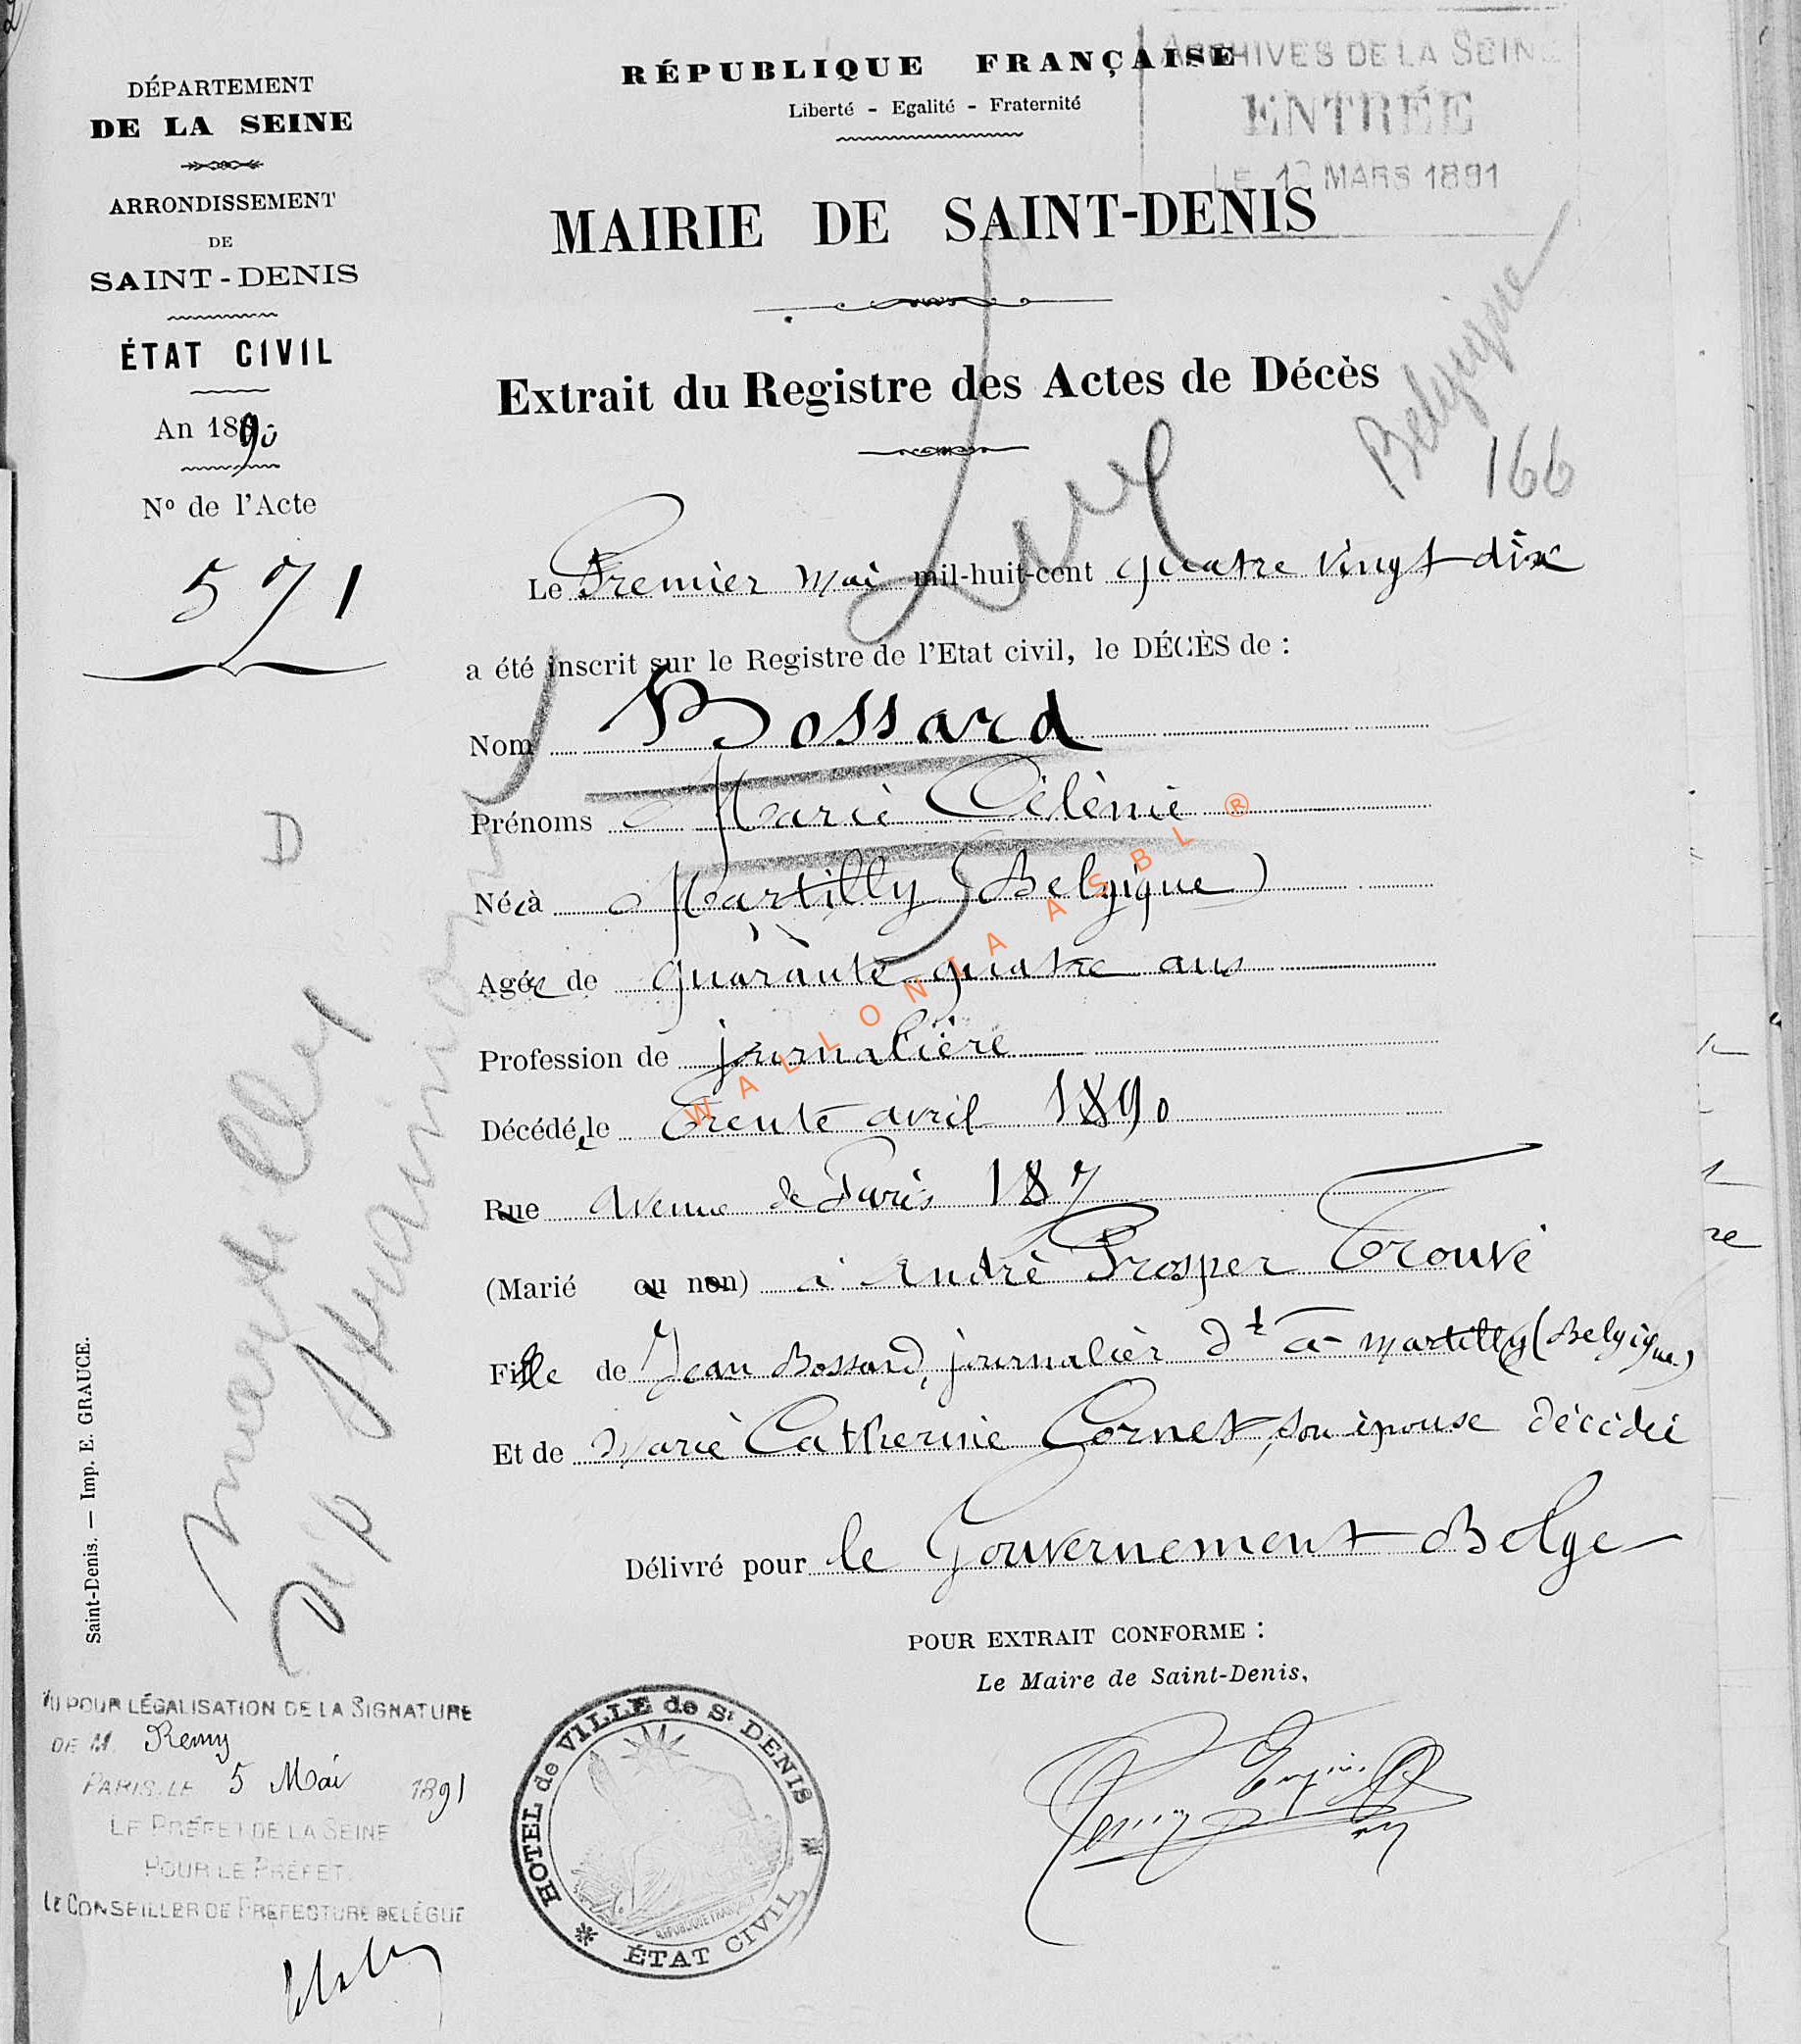 DÉPARTEMENT
DE LA SEINE
ARRONDISSEMENT
DE
SAINT-DENIS
ÉTAT CIVIL
An 1890
No de l'Acte
571
RÉPUBLIQUE FRANÇAISE
Liberté - Egalité - Fraternité
ARCHIVES DE LA SEINE
ENTRÉE
MARS 1891
MAIRIE DE SAINT-DENIS
Extrait du Registre des Actes de Décès
Belgique
166
Le Premier Mai mil-huit-cent quatre vingt dix
a été inscrit sur le Registre de l'Etat civil, le DÉCÈS de :
Nom Bossard
Prénoms Marie Célénie
Née à Martilly (Belgique)
Agée de quarante quatre ans
Profession de journalière
Décédée le Trente avril 1890
Rue avenue de Paris 187
(Marié ou non) à André Prosper Trouvé
Fille de Jean Bossard, journalier dt à Martilly (Belgique)
Et de Marie Catherine Cornet, son épouse décédée
Délivré pour le Gouvernement Belge
POUR EXTRAIT CONFORME :
Le Maire de Saint-Denis,
D
WALLONIA ASBL ®
Saint-Denis. — Imp. E. GRAUCE.
VU POUR LÉGALISATION DE LA SIGNATURE
DE M. Remy
PARIS, LE 5 Mai 1891
LE PRÉFET DE LA SEINE
POUR LE PRÉFET
LE CONSEILLER DE PREFECTURE DELEGUE
HOTEL de VILLE de St DENIS
ÉTAT CIVIL
RÉPUBLIQUE FRANÇAISE